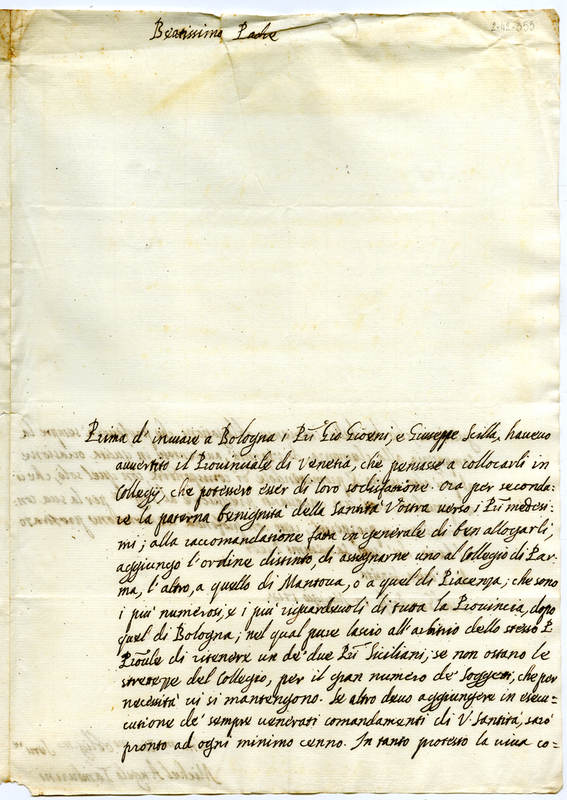 2-42-355
Beatissimo Padre
Prima d'inuiare a Bologna i PP.ri Gio Giorni, e Giuseppe Scilla, haueuo
auuertito il Prouinciale di Venetia, che pensasse a collocarli in
Collegij, che potessero esser di loro sodisfazione. Ora per seconda=
re la paterna benignità della Santità Vostra uerso i PP.ri medesi=
mi; alla raccomandazione fata in generale di ben allogarli,
aggiungo l'ordine distinto, di assegnarne uno al Collegio di Par=
ma, l'altro, a quello di Mantoua, o a quel di Piacenza; che sono
i più numerosi, e i più riguardeuoli di tutta la Prouincia, dopo
quel di Bologna; nel qual pure lascio all'arbitrio dello stesso P.
P.roule di ritenere un de' due PP.ri Siciliani, se non ostano le
strettezze del Collegio, per il gran numero de' Soggetti, che per
necessità ui si mantengono. Se altro deuo aggiungere in esecu=
cutione de' sempre uenerati comandamenti di V. Santità, sarò
pronto ad ogni minimo cenno. In tanto protesto la uiua co=